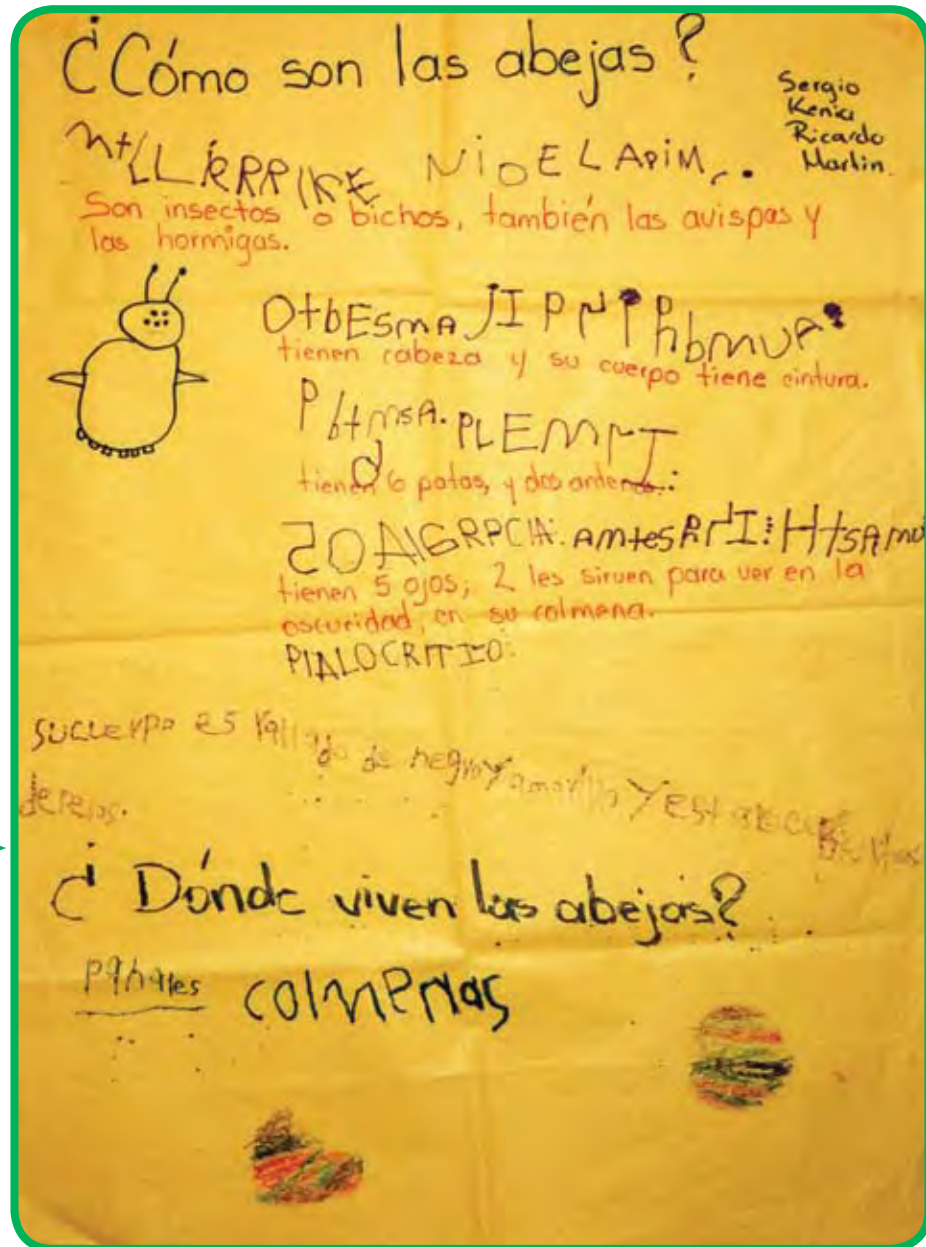 ¿Cómo son las abejas?
Sergio
Kenia
Ricardo
Martin.
NIOELAPIM
Son insectos o bichos, también las avispas y
las hormigas.
OtbEsmA
tienen cabeza y su cuerpo tiene cintura.
PLEMPI
tienen 6 patas, y dos antenas.
AmtesA HtsAmU
tienen 5 ojos; 2 les sirven para ver en la
oscuridad, en su colmena.
PIALOCRITIO.
sucuerpo es rallado de negro y amarillo y esta
de pelos.
¿Dónde viven las abejas?
panales colmenas